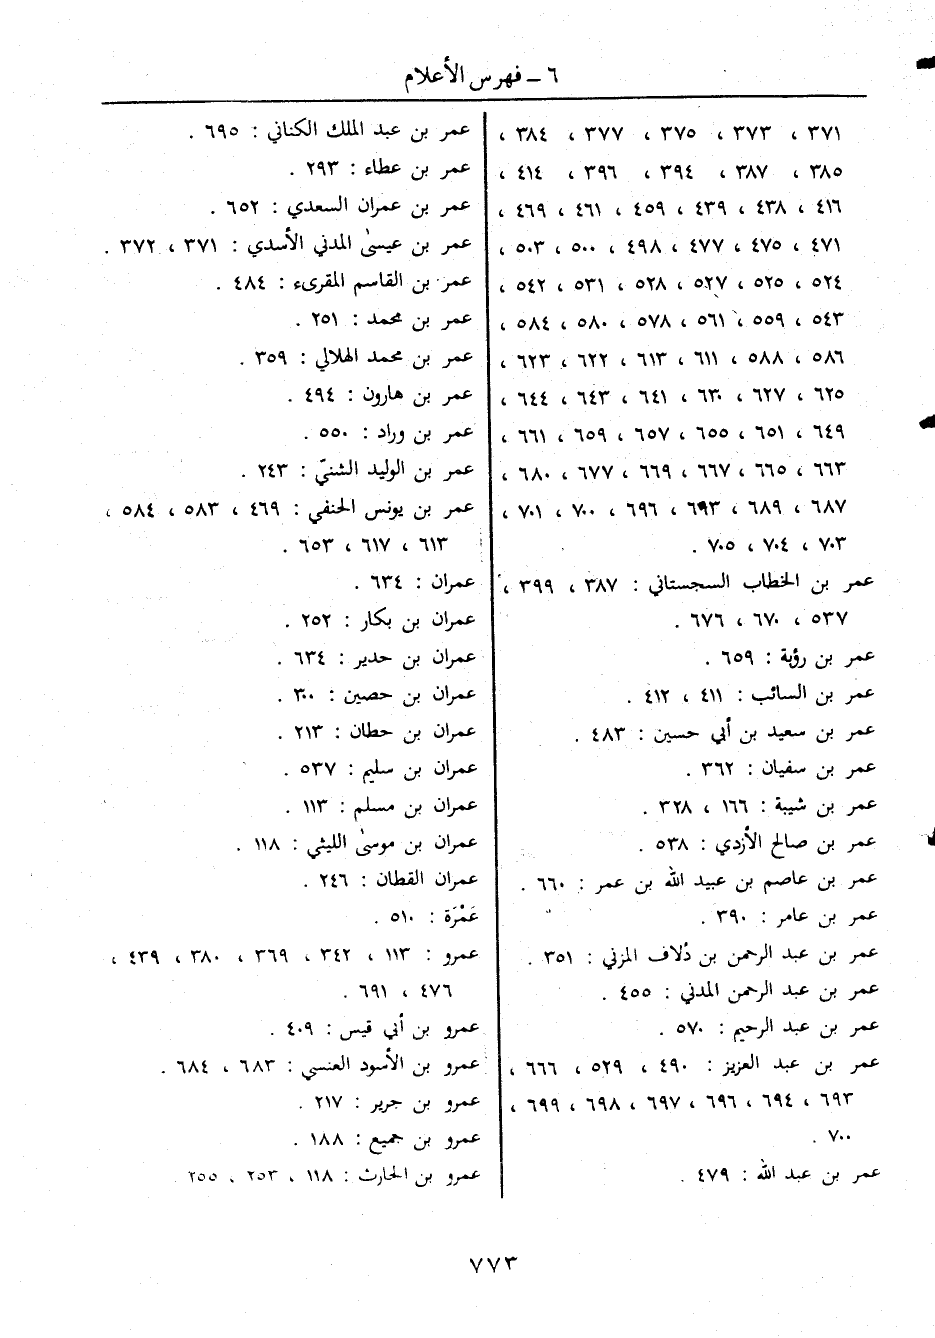 ٦ ـ فهرس الأعلام
٣٧١ ، ٣٧٣ ، ٣٧٥ ، ٣٧٧ ، ٣٨٤ ،
٣٨٥ ، ٣٨٧ ، ٣٩٤ ، ٣٩٦ ، ٤١٤ ،
٤١٦ ، ٤٣٨ ، ٤٣٩ ، ٤٥٩ ، ٤٦١ ، ٤٦٩ ،
٤٧١ ، ٤٧٥ ، ٤٧٧ ، ٤٩٨ ، ٥٠٠ ، ٥٠٣ ،
٥٢٤ ، ٥٢٥ ، ٥٢٧ ، ٥٢٨ ، ٥٣١ ، ٥٤٢ ،
٥٤٣ ، ٥٥٩ ، ٥٦١ ، ٥٧٨ ، ٥٨٠ ، ٥٨٤ ،
٥٨٦ ، ٥٨٨ ، ٦١١ ، ٦١٣ ، ٦٢٢ ، ٦٢٣ ،
٦٢٥ ، ٦٢٧ ، ٦٣٠ ، ٦٤١ ، ٦٤٣ ، ٦٤٤ ،
٦٤٩ ، ٦٥١ ، ٦٥٥ ، ٦٥٧ ، ٦٥٩ ، ٦٦١ ،
٦٦٣ ، ٦٦٥ ، ٦٦٧ ، ٦٦٩ ، ٦٧٧ ، ٦٨٠ ،
٦٨٧ ، ٦٨٩ ، ٦٩٣ ، ٦٩٦ ، ٧٠٠ ، ٧٠١ ،
٧٠٣ ، ٧٠٤ ، ٧٠٥ .
عمر بن الخطاب السجستاني : ٣٨٧ ، ٣٩٩ ،
٥٣٧ ، ٦٧٠ ، ٦٧٦ .
عمر بن رؤبة : ٦٥٩ .
عمر بن السائب : ٤١١ ، ٤١٢ .
عمر بن سعيد بن أبي حسين : ٤٨٣ .
عمر بن سفيان : ٣٦٢ .
عمر بن شيبة : ١٦٦ ، ٣٢٨ .
عمر بن صالح الأزدي : ٥٣٨ .
عمر بن عاصم بن عبيد الله بن عمر : ٦٦٠ .
عمر بن عامر : ٣٩٠ .
عمر بن عبد الرحمن بن دُلاف المزني : ٣٥١ .
عمر بن عبد الرحمن المدني : ٤٥٥ .
عمر بن عبد الرحيم : ٥٧٠ .
عمر بن عبد العزيز : ٤٩٠ ، ٥٢٩ ، ٦٦٦ ،
٦٩٣ ، ٦٩٤ ، ٦٩٦ ، ٦٩٧ ، ٦٩٨ ، ٦٩٩ ،
٧٠٠ .
عمر بن عبد الله : ٤٧٩ .
عمر بن عبد الملك الكناني : ٦٩٥ .
عمر بن عطاء : ٢٩٣ .
عمر بن عمران السعدي : ٦٥٢ .
عمر بن عيسىٰ المدني الأسدي : ٣٧١ ، ٣٧٢ .
عمر بن القاسم المقرىء : ٤٨٤ .
عمر بن محمد : ٢٥١ .
عمر بن محمد الهلالي : ٣٥٩ .
عمر بن هارون : ٤٩٤ .
عمر بن وراد : ٥٥٠ .
عمر بن الوليد الشنيّ : ٢٤٣ .
عمر بن يونس الحنفي : ٤٦٩ ، ٥٨٣ ، ٥٨٤ ،
٦١٣ ، ٦١٧ ، ٦٥٣ .
عمران : ٦٣٤ .
عمران بن بكار : ٢٥٢ .
عمران بن حدير : ٦٣٤ .
عمران بن حصين : ٣٠٠ .
عمران بن حطان : ٢١٣ .
عمران بن سليم : ٥٣٧ .
عمران بن مسلم : ١١٣ .
عمران بن موسىٰ الليثي : ١١٨ .
عمران القطان : ٢٤٦ .
عَمْرَة : ٥١٠ .
عمرو : ١١٣ ، ٣٤٢ ، ٣٦٩ ، ٣٨٠ ، ٤٣٩ ،
٤٧٦ ، ٦٩١ .
عمرو بن أبي قيس : ٤٠٩ .
عمرو بن الأسود العنسي : ٦٨٣ ، ٦٨٤ .
عمرو بن جرير : ٢١٧ .
عمرو بن جميع : ١٨٨ .
عمرو بن الحارث : ١١٨ ، ٢٥٣ ، ٢٥٥ .
٧٧٣